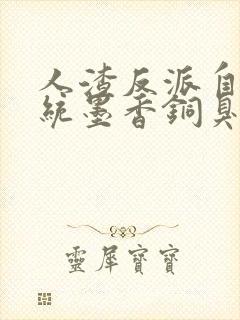 人渣反派自
統墨香銅臭
靈犀寶寶